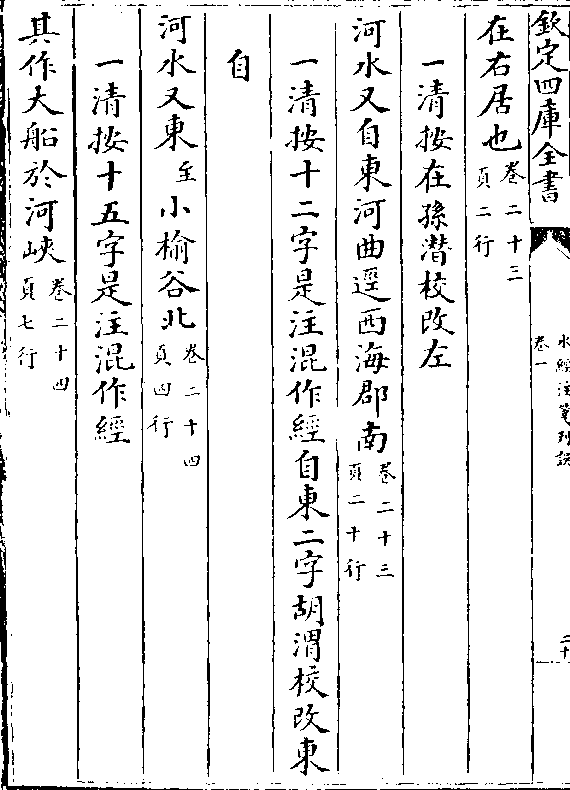 欽定四庫全書
水經注箋刊誤
卷一
二十
在右居也卷二十三
頁二行
一清按在孫潛校改左
河水又自東河曲逕西海郡南卷二十三
頁二十行
一清按十二字是注混作經自東二字胡渭校改東
自
河水又東至小榆谷北卷二十四
頁四行
一清按十五字是注混作經
其作大船於河峽卷二十四
頁七行